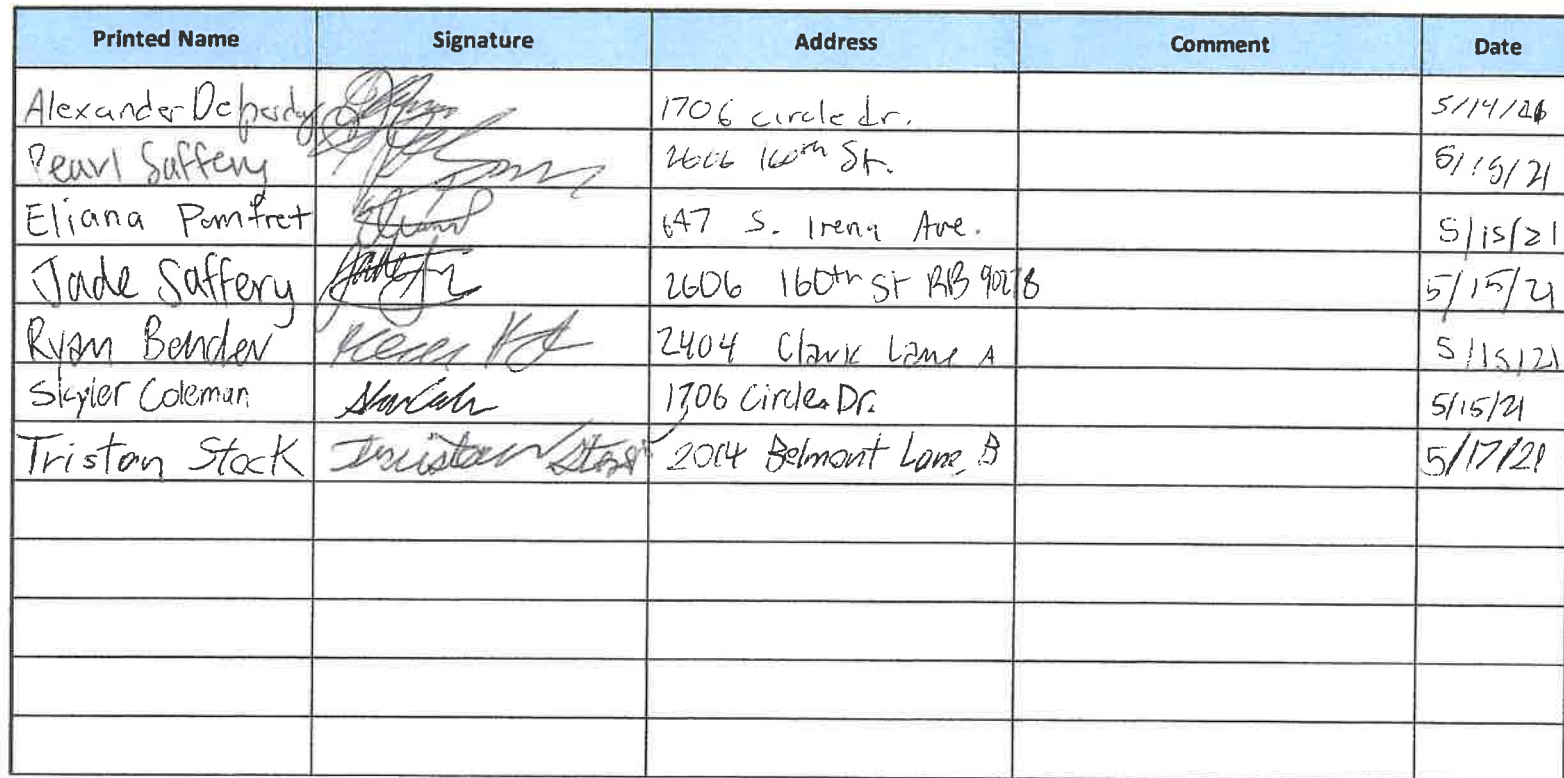 Printed Name Signature Address Comment Date
Alexander 1706 circle dr. 5/14/21
Pearl Saffery 2606 160th St. 5/15/21
Eliana Pomfret 647 S. Irena Ave. 5/15/21
Jade Saffery 2606 160th St RB 90278 5/15/21
Ryan Bender 2404 Clark Lane A 5/15/21
Skyler Coleman 1706 Circle Dr. 5/15/21
Tristan Stock Tristan Stock Belmont Lane, B 5/17/21